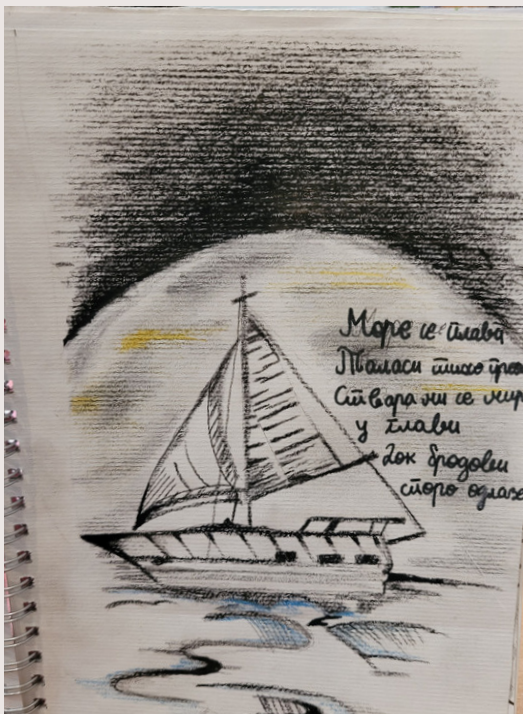 Море се плава
Таласи тихо
Ствара ми се мир
у глави
Док бродови
споро